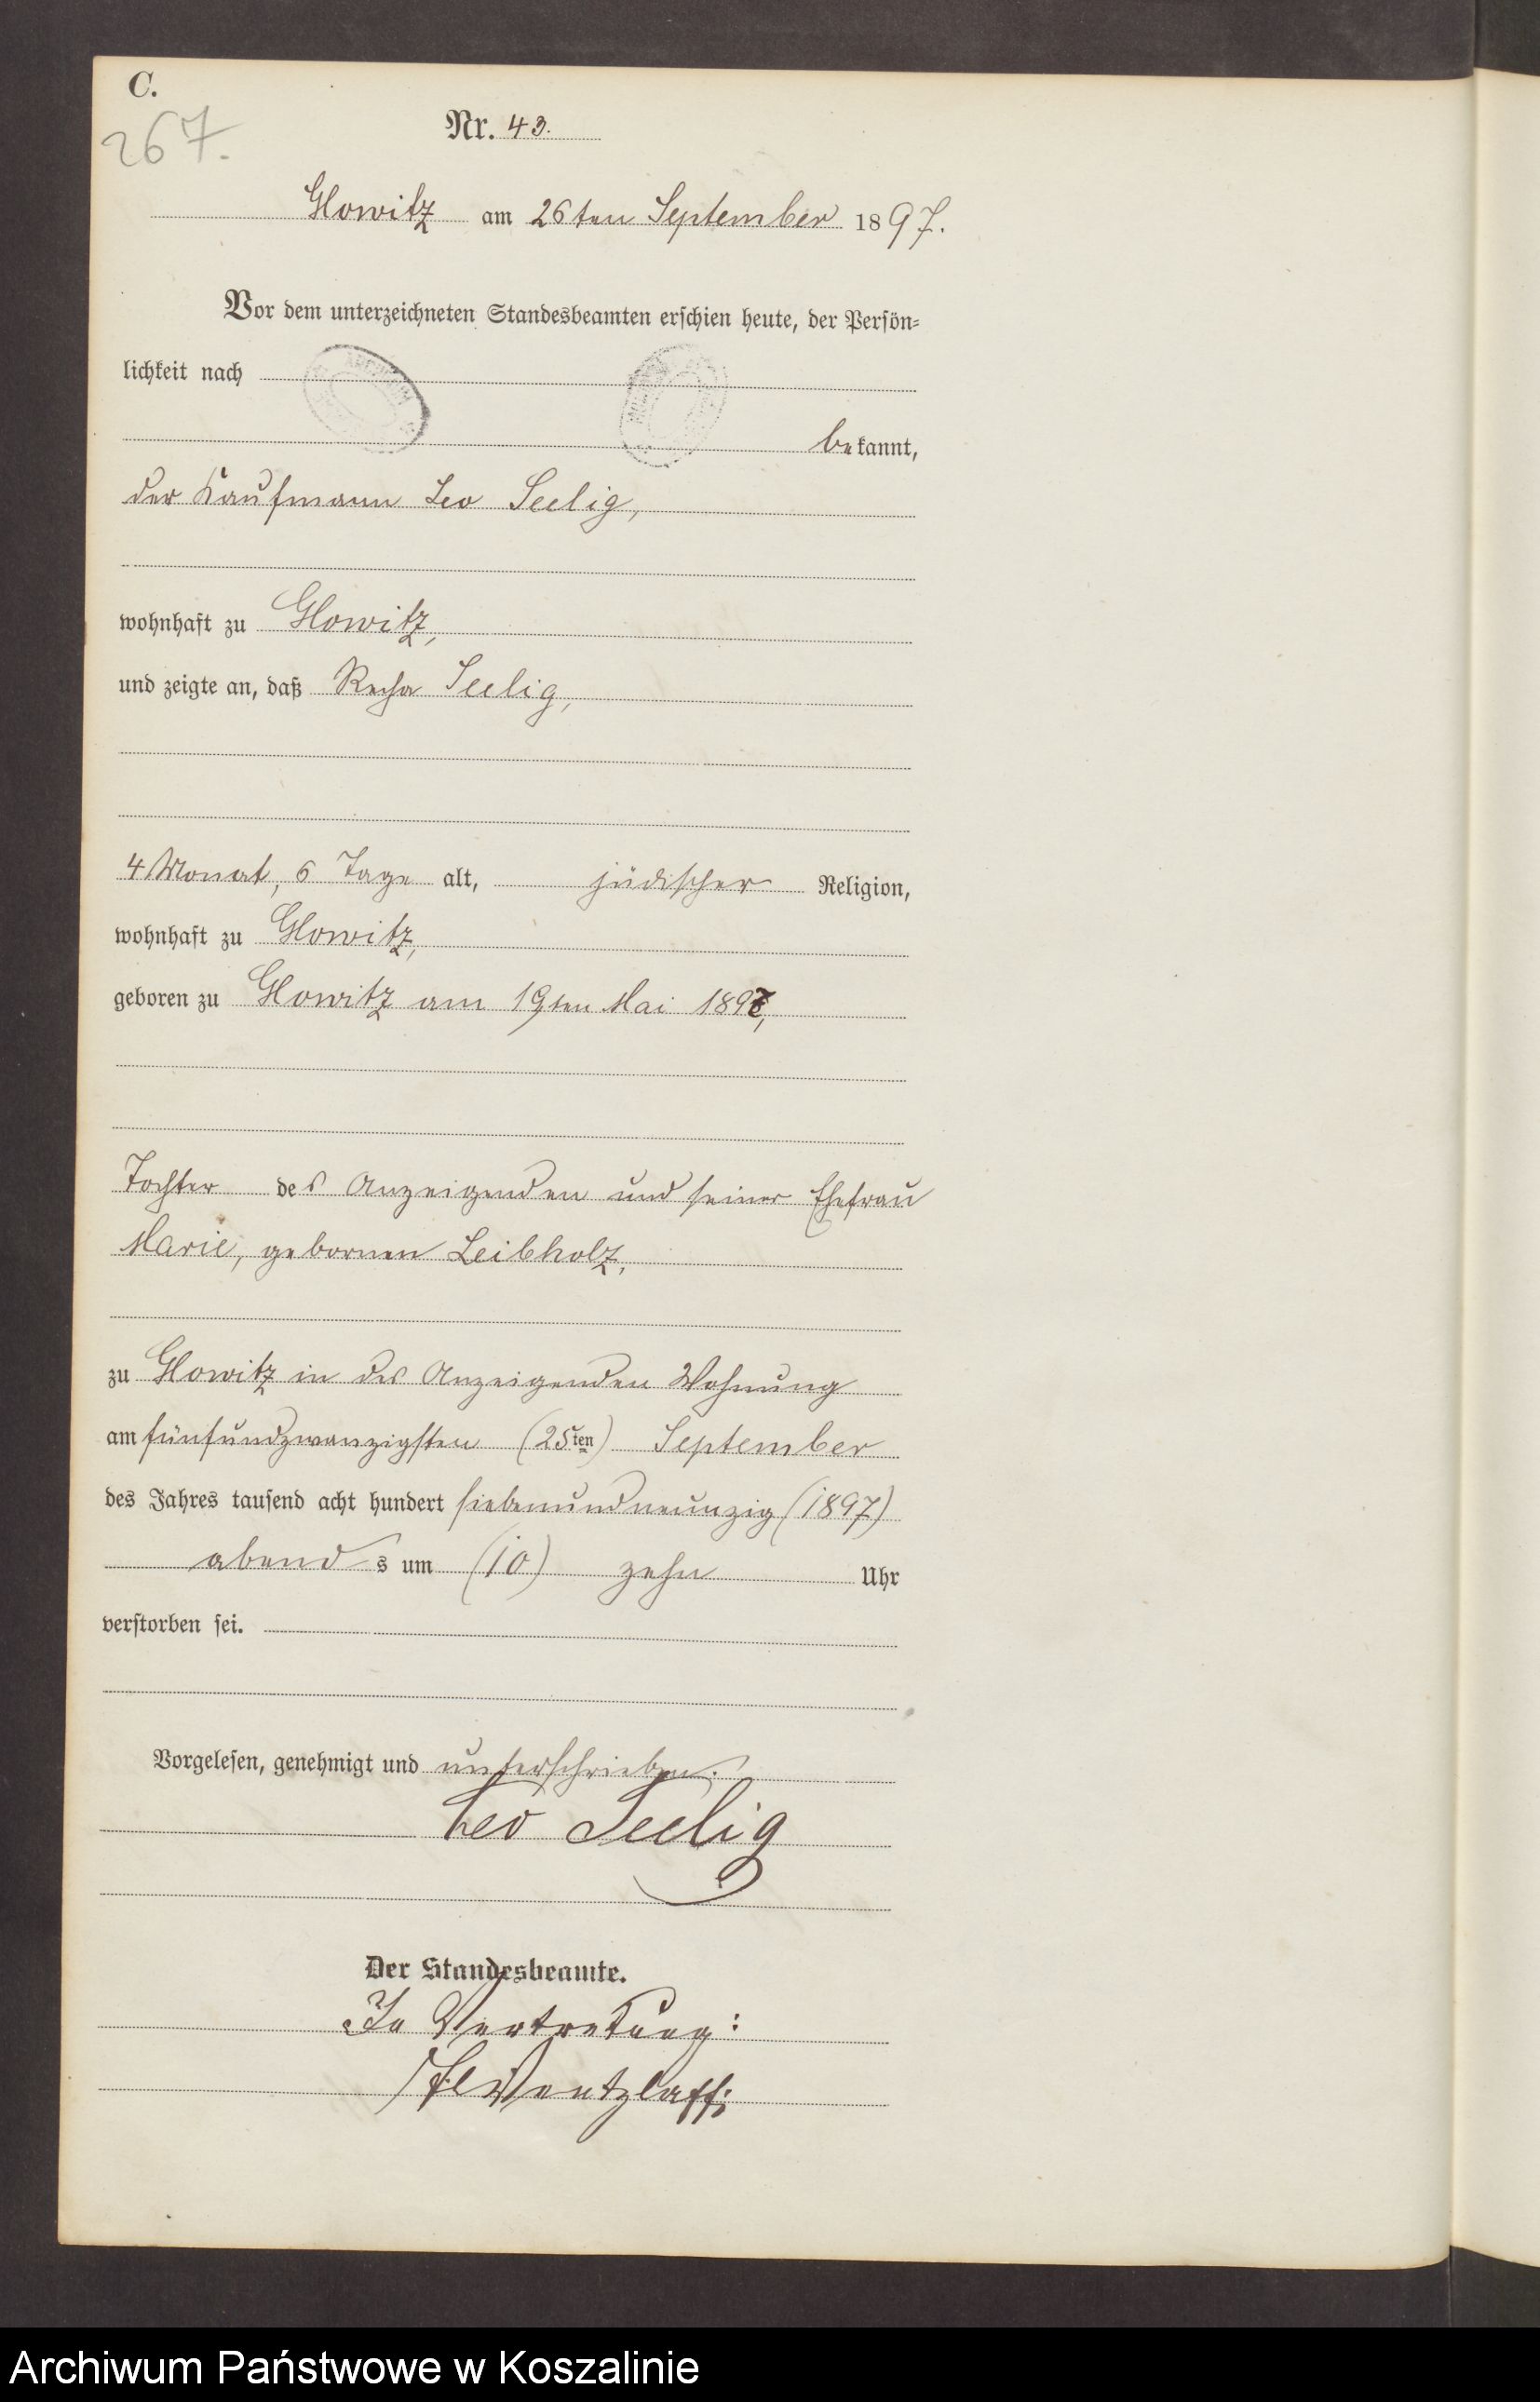 C.
267.
Nr. 43.
Glowitz am 26ten September 1897.
Vor dem unterzeichneten Standesbeamten erschien heute, der Persön-
lichkeit nach
bekannt,
der Kaufmann Leo Seelig,
wohnhaft zu Glowitz,
und zeigte an, daß Recha Seelig,
4 Monat, 6 Tage alt, jüdischer Religion,
wohnhaft zu Glowitz,
geboren zu Glowitz am 19ten Mai 1897,
Tochter des Anzeigenden und seiner Ehefrau
Marie, gebornen Leibholz,
zu Glowitz in des Anzeigenden Wohnung
am fünfundzwanzigsten (25ten) September
des Jahres tausend acht hundert siebenundneunzig (1897)
abends um (10) zehn Uhr
verstorben sei.
Vorgelesen, genehmigt und unterschrieben.
Leo Seelig
Der Standesbeamte.
In Vertretung:
Wentzlaff
Archiwum Państwowe w Koszalinie